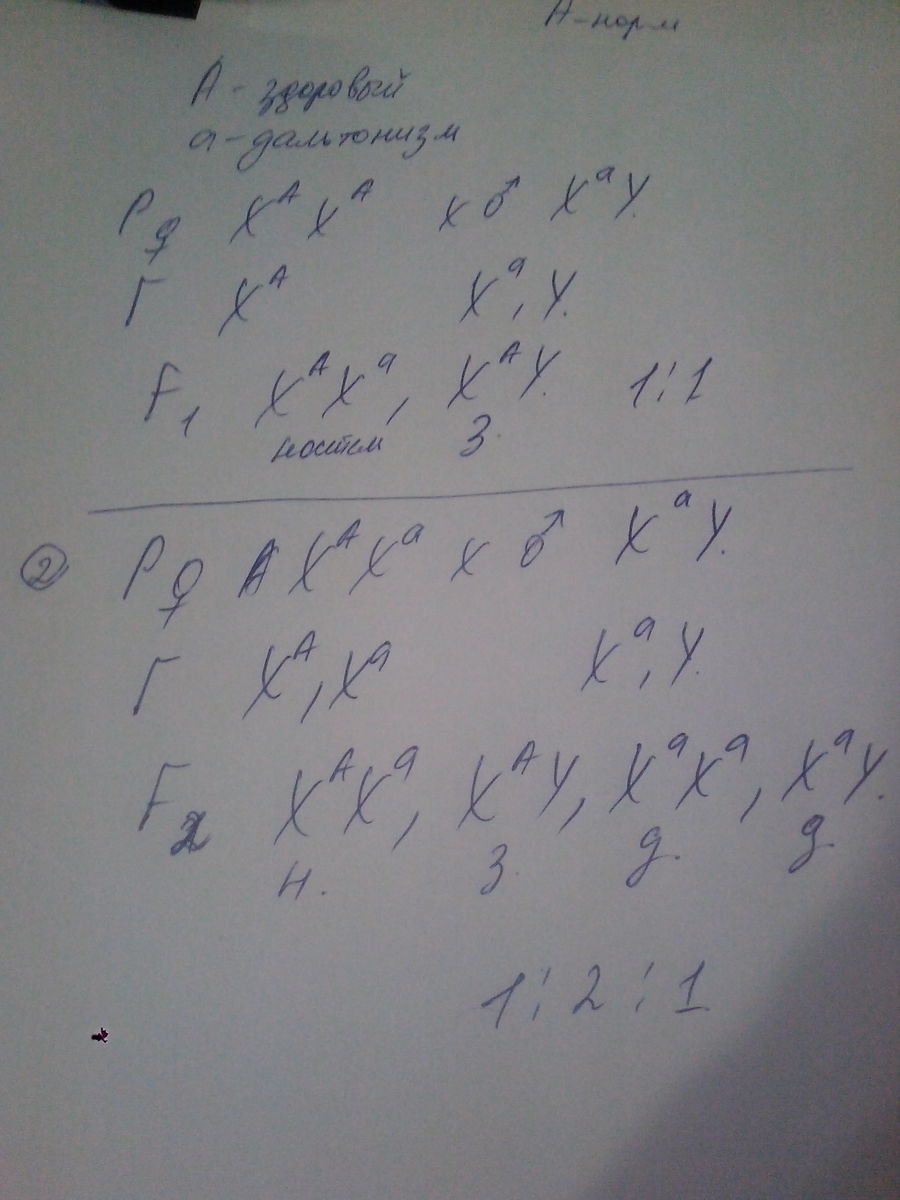 А - норм
А - здоровый
а - дальтонизм
P ♀ X^A X^A x ♂ X^a Y.
Г X^A X^a, Y.
F₁ X^A X^a, X^A Y. 1:1
З.
② P ♀ A X^A X^a x ♂ X^a Y.
Г X^A, X^a X^a, Y.
F₂ X^A X^a, X^A Y, X^a X^a, X^a Y.
н. З. д. д.
1:2:1